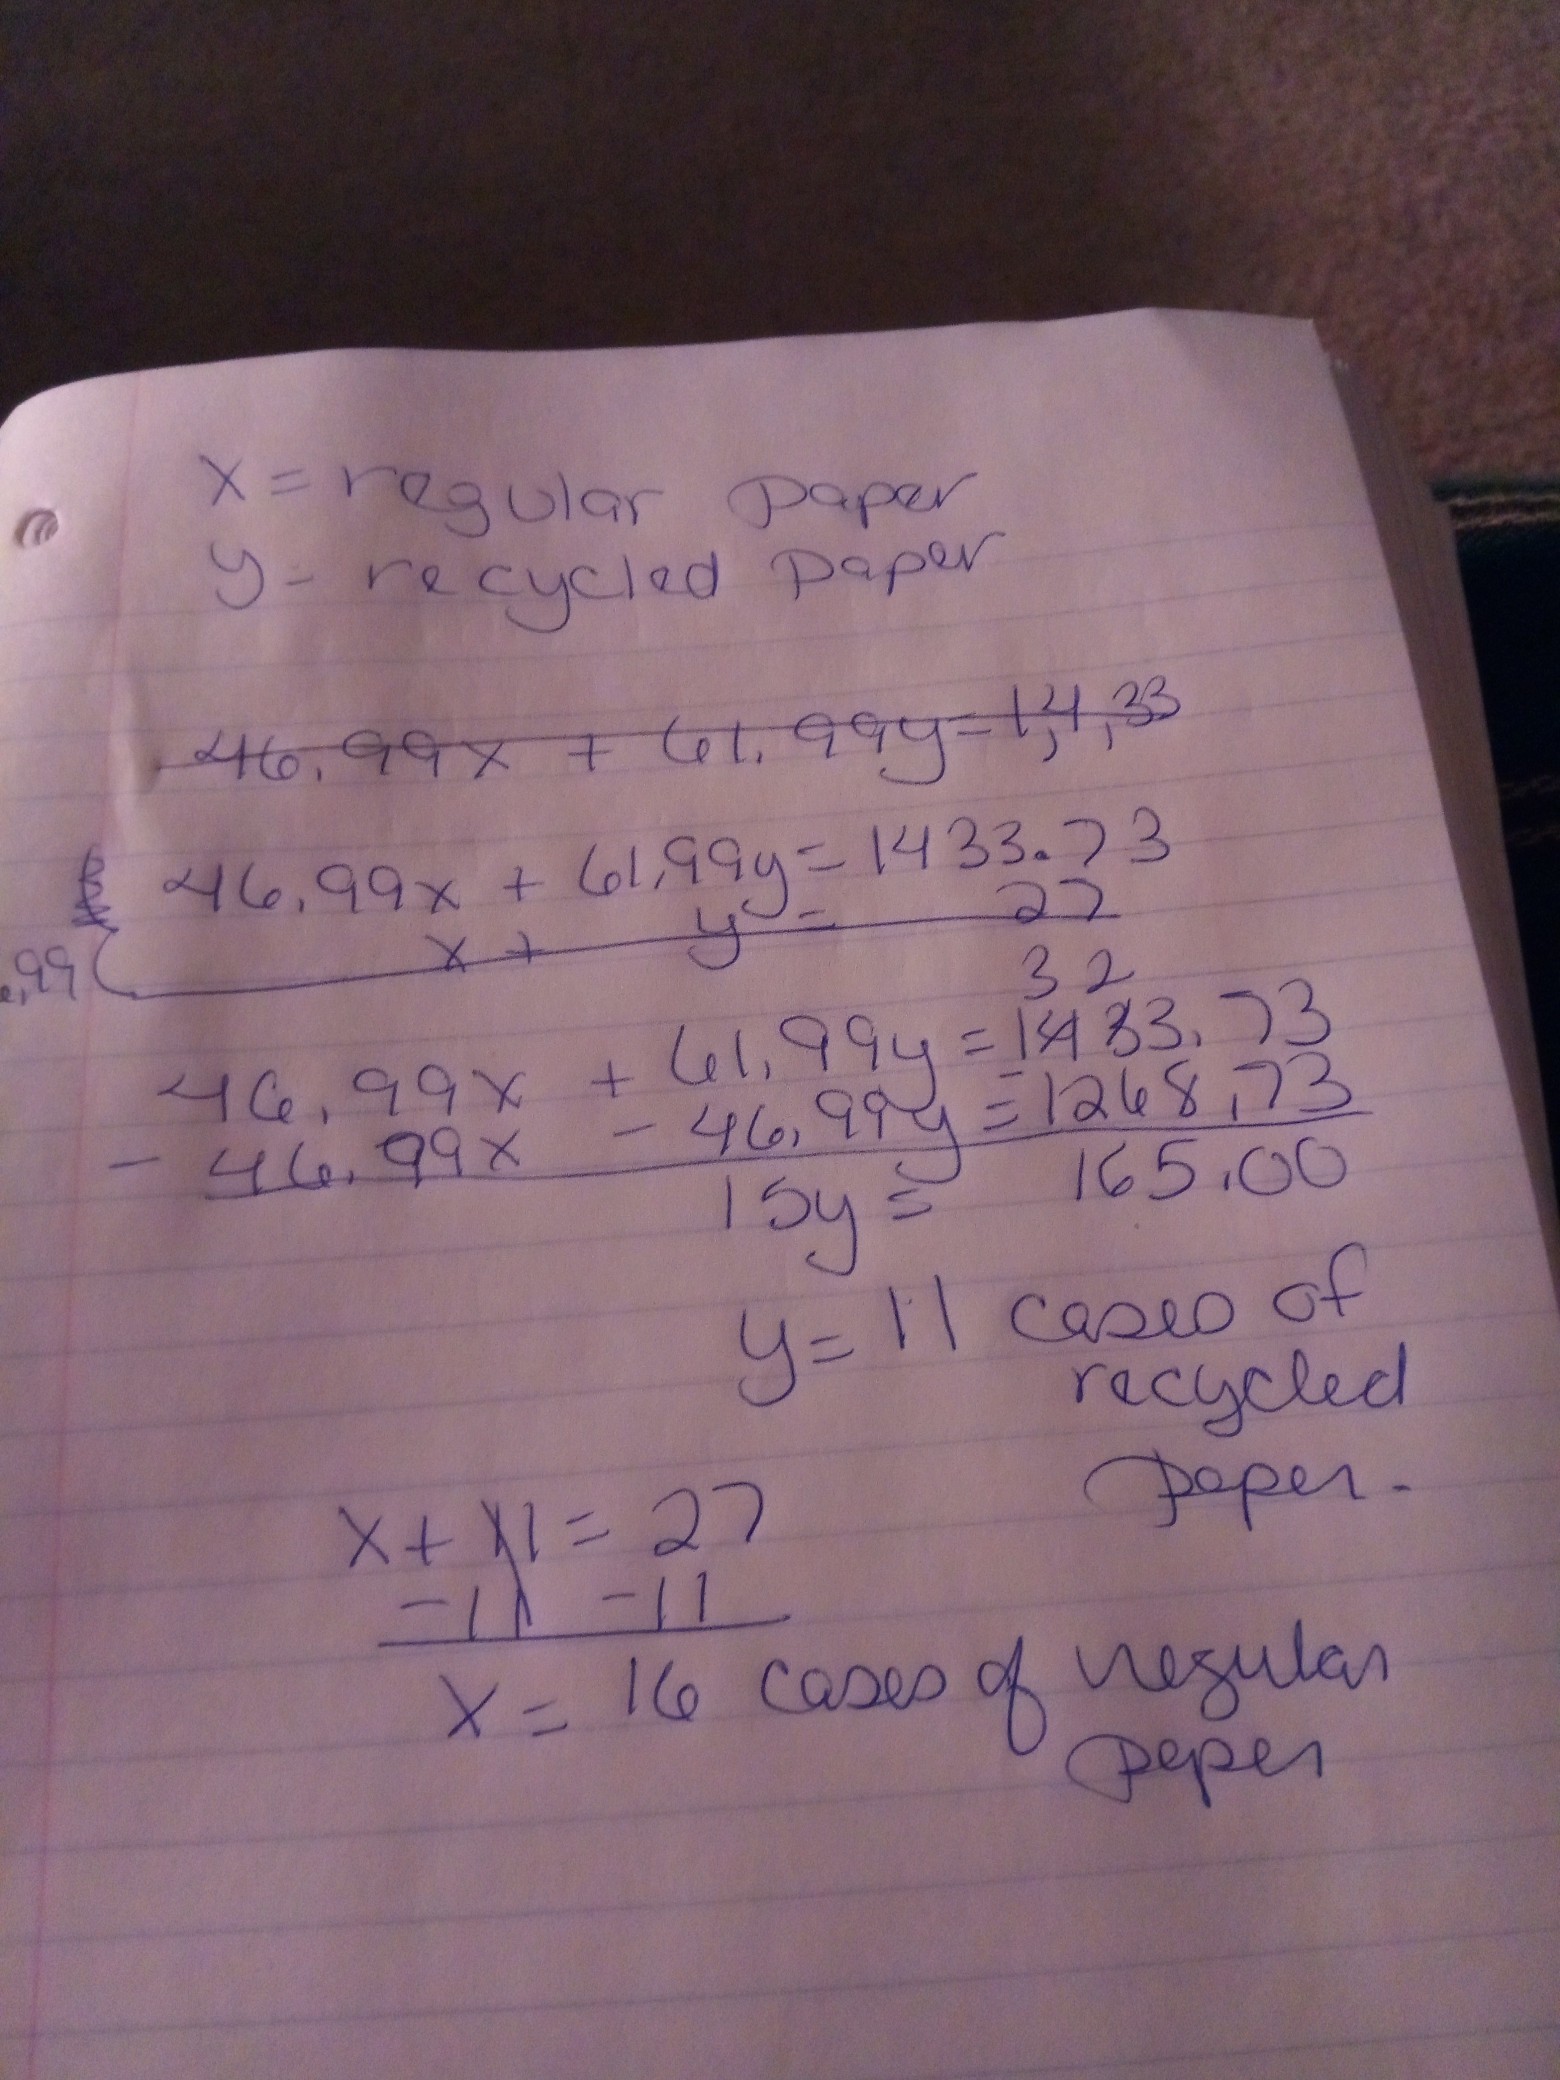 x = regular paper
y - recycled paper
46.99x + 61.99y = 1,4,33
46.99x + 61.99y = 1433.73
x + y = 27
,99
3 2
46.99x + 61.99y = 1433.73
- 46.99x - 46.99y = 1268.73
15y = 165.00
y = 11 cases of
recycled
paper.
x + 11 = 27
-11 -11
x = 16 cases of regular
paper